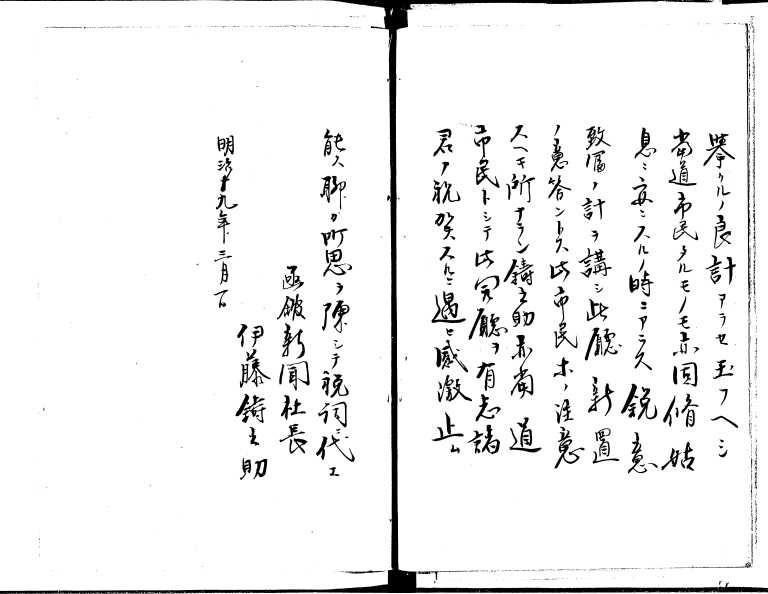 挙クルノ良計アラセ玉フヘシ
当道市民タルモノモ亦因循姑
息ニ安ンスルノ時ニアラス鋭意
致富ノ計ヲ講シ此庁新置
ノ意答ントス此市民ホノ注意
スヘキ所ナラン鋳之助亦当道
市民トシテ此開庁ヲ有志諸
君ヲ祝賀スルニ遇ヒ感激止ム
能ハス聊カ所思ヲ陳シテ祝詞ニ代エ
函館新聞社長
伊藤鋳之助
明治十九年三月一日